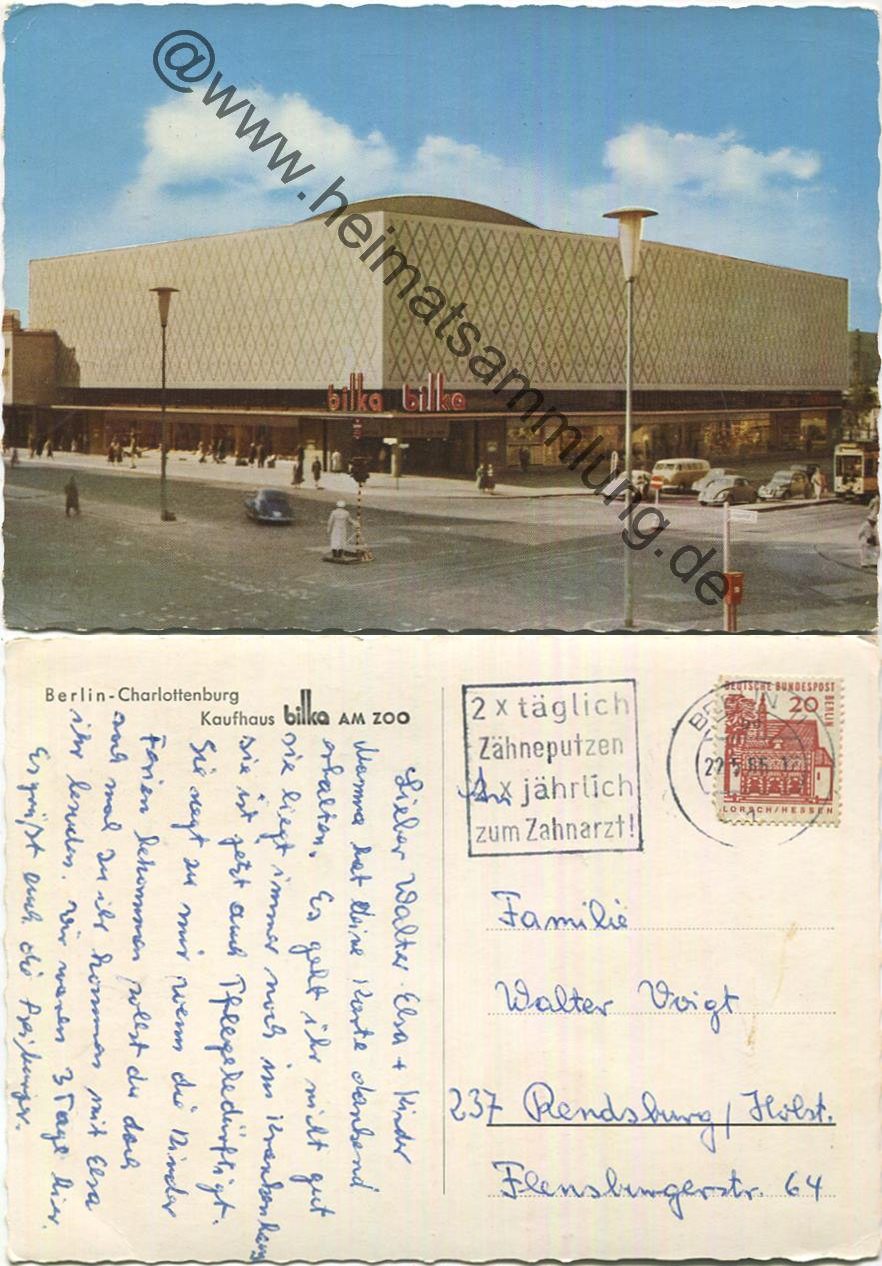 @www.heimatsammlung.de
bilka bilka
Berlin-Charlottenburg
Kaufhaus bilka AM ZOO
Lieber Walter Elsa + Kinder
Mama hat deine Karte dankend
erhalten. Es geht ihr nicht gut
sie liegt immer noch im Krankenhaus
sie ist jetzt auch Pflegebedürftigt.
Sie sagt zu mir wenn die Kinder
Ferien bekommen sollst du doch
auch mal zu ihr kommen mit Elsa
ihr beiden. Wir waren 3 Tage hier.
Es grüßt euch die Freiburger.
2 x täglich
Zähneputzen
2 x jährlich
zum Zahnarzt!
BERLIN
22.5.65
DEUTSCHE BUNDESPOST
BERLIN
20
LORSCH/HESSEN
An
Familie
Walter Voigt
237 Rendsburg/Holst.
Flensburgerstr. 64